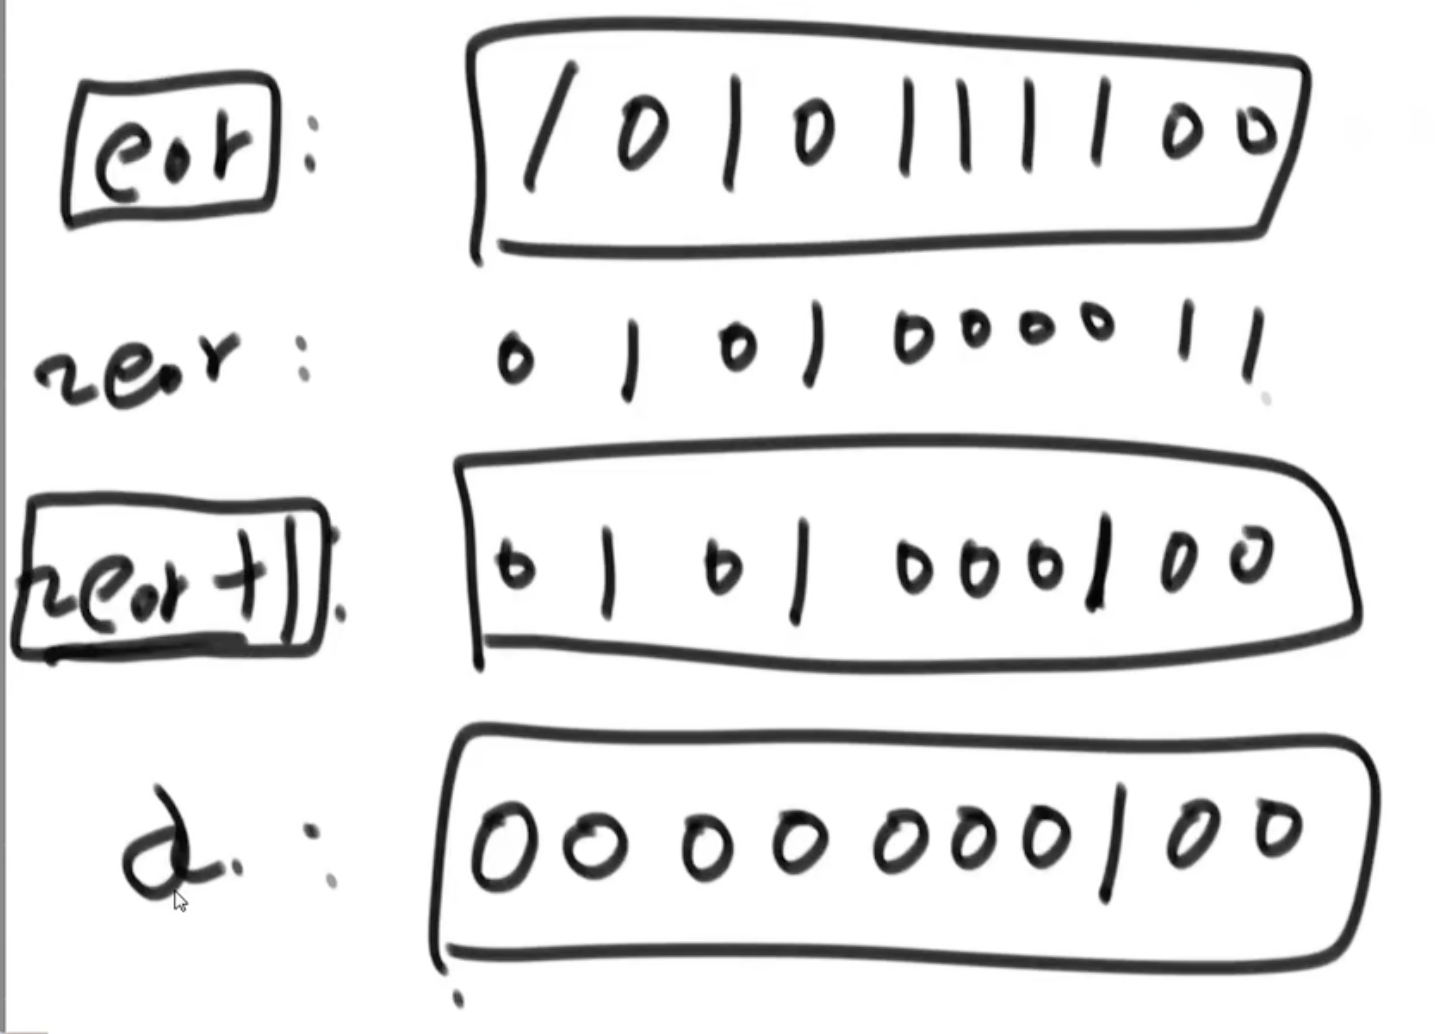 eor: 1010111100
~eor: 0101000011
~eor+1: 0101000100
a.: 0000000100